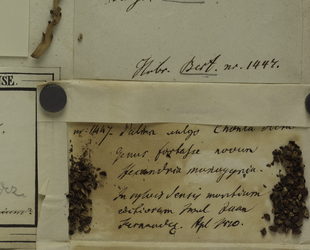 USE.
Hbr. Bert. nr. 1447.
nr. 1447. Palma vulgo Chonta
Genus fortasse novum
Hexandria monogynia.
In sylvis densis montium
editiorum Insul. Juan
Fernandez. Apl. 1830.